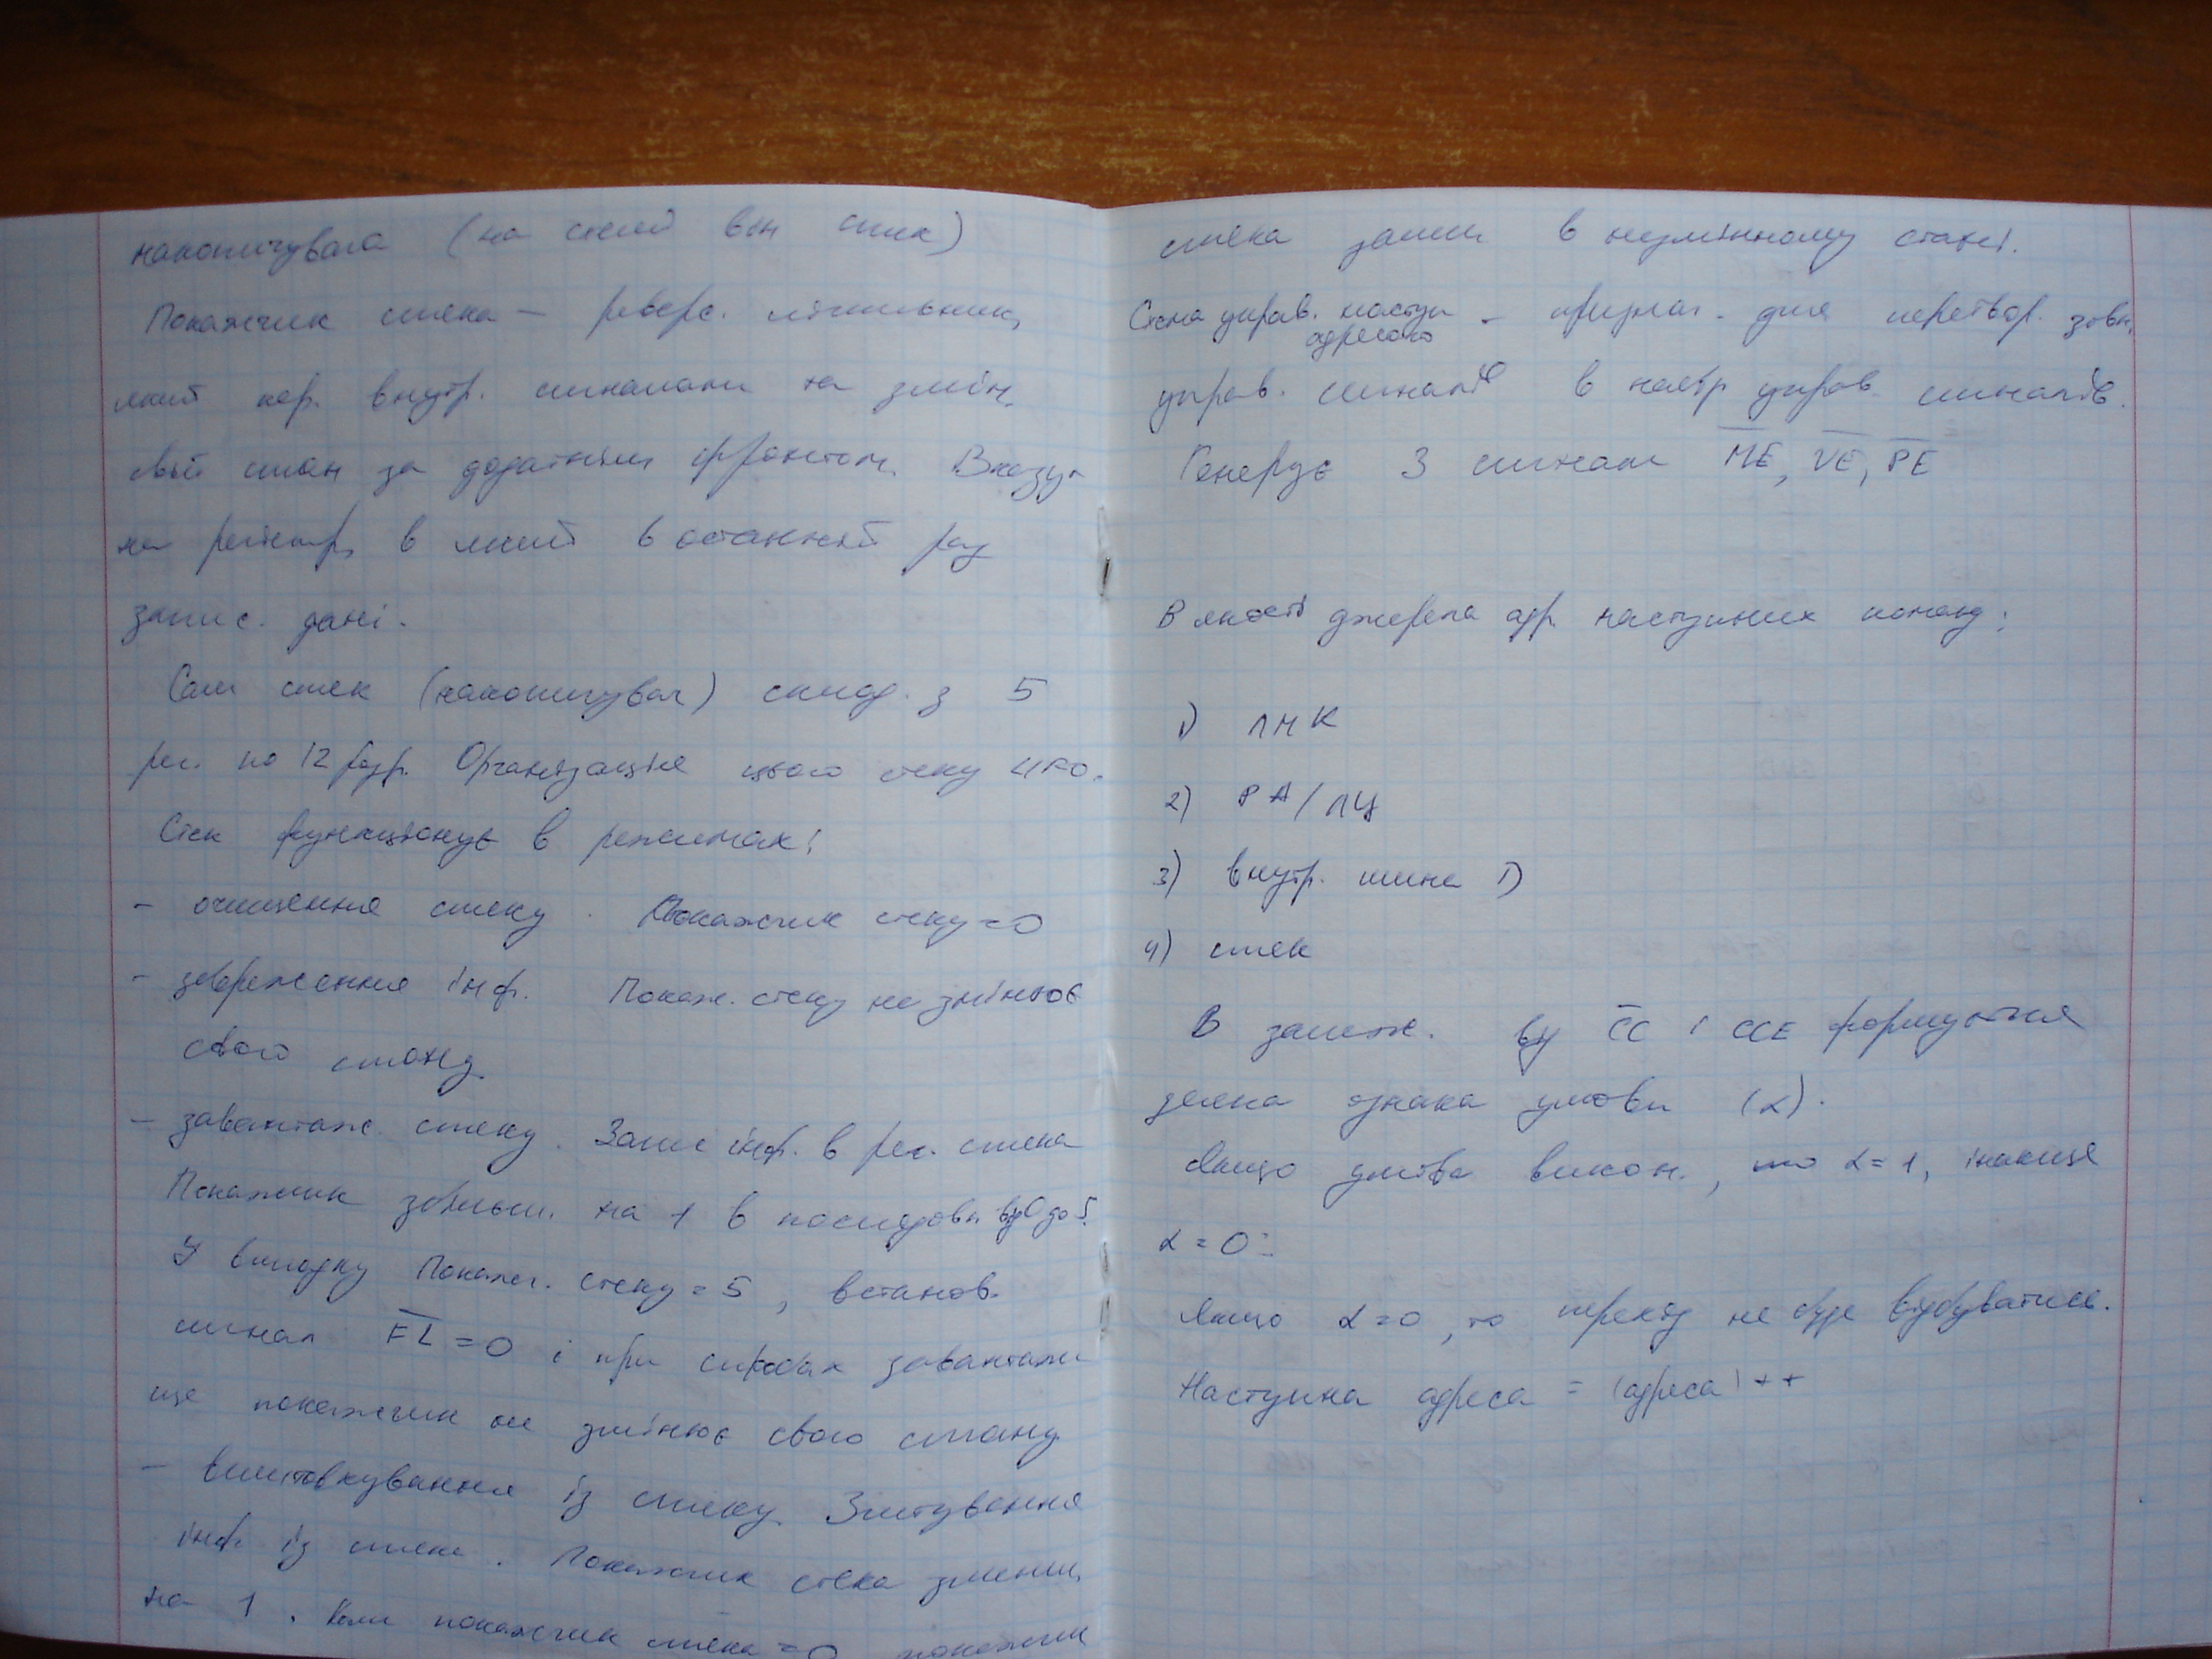 накопичувача (на схемі він стек)
Покажчик стека – реверс. лічильник,
який кер. внутр. сигналами та змін.
свій стан за додатнім фронтом. Вказує
на регістр, в який в останній раз
запис. дані.
Сам стек (накопичувач) склад. з 5
рег. по 12 розр. Організація цього стеку LIFO.
Стек функціонує в режимах:
- очищення стеку. Покажчик стеку = 0
- збереження інф. Покаж. стеку не змінює
свого стану
- завантаж. стеку. Запис інф. в рег. стека
Покажчик збільш. на 1 в послідовн від 0 до 5.
У випадку Покажч. стеку = 5, встанов.
сигнал F̅L̅ = 0 і при спробах завантажи
ще покажчик не змінює свого стану
- виштовхування із стеку. Зчитування
інф. із стека. Покажчик стека зменш.
на 1. Коли покажчик стека = 0 покажчик
стека залиш в незмінному стані.
Схема управ. наступ адресою – признач. для перетвор. зовн.
управ. сигналів в набір управ. сигналів.
Генерує 3 сигнали M̅E̅, V̅E̅, P̅E̅
В якості джерела адр. наступних команд:
1) ЛМК
2) РА/ЛЦ
3) внутр. шина D
4) стек
В залеж. від C̅C і CCE формується
деяка ознака умови (α).
Якщо умова викон., то α = 1, інакше
α = 0.
Якщо α = 0, то перехід не буде відбуватись.
Наступна адреса = (адреса)++